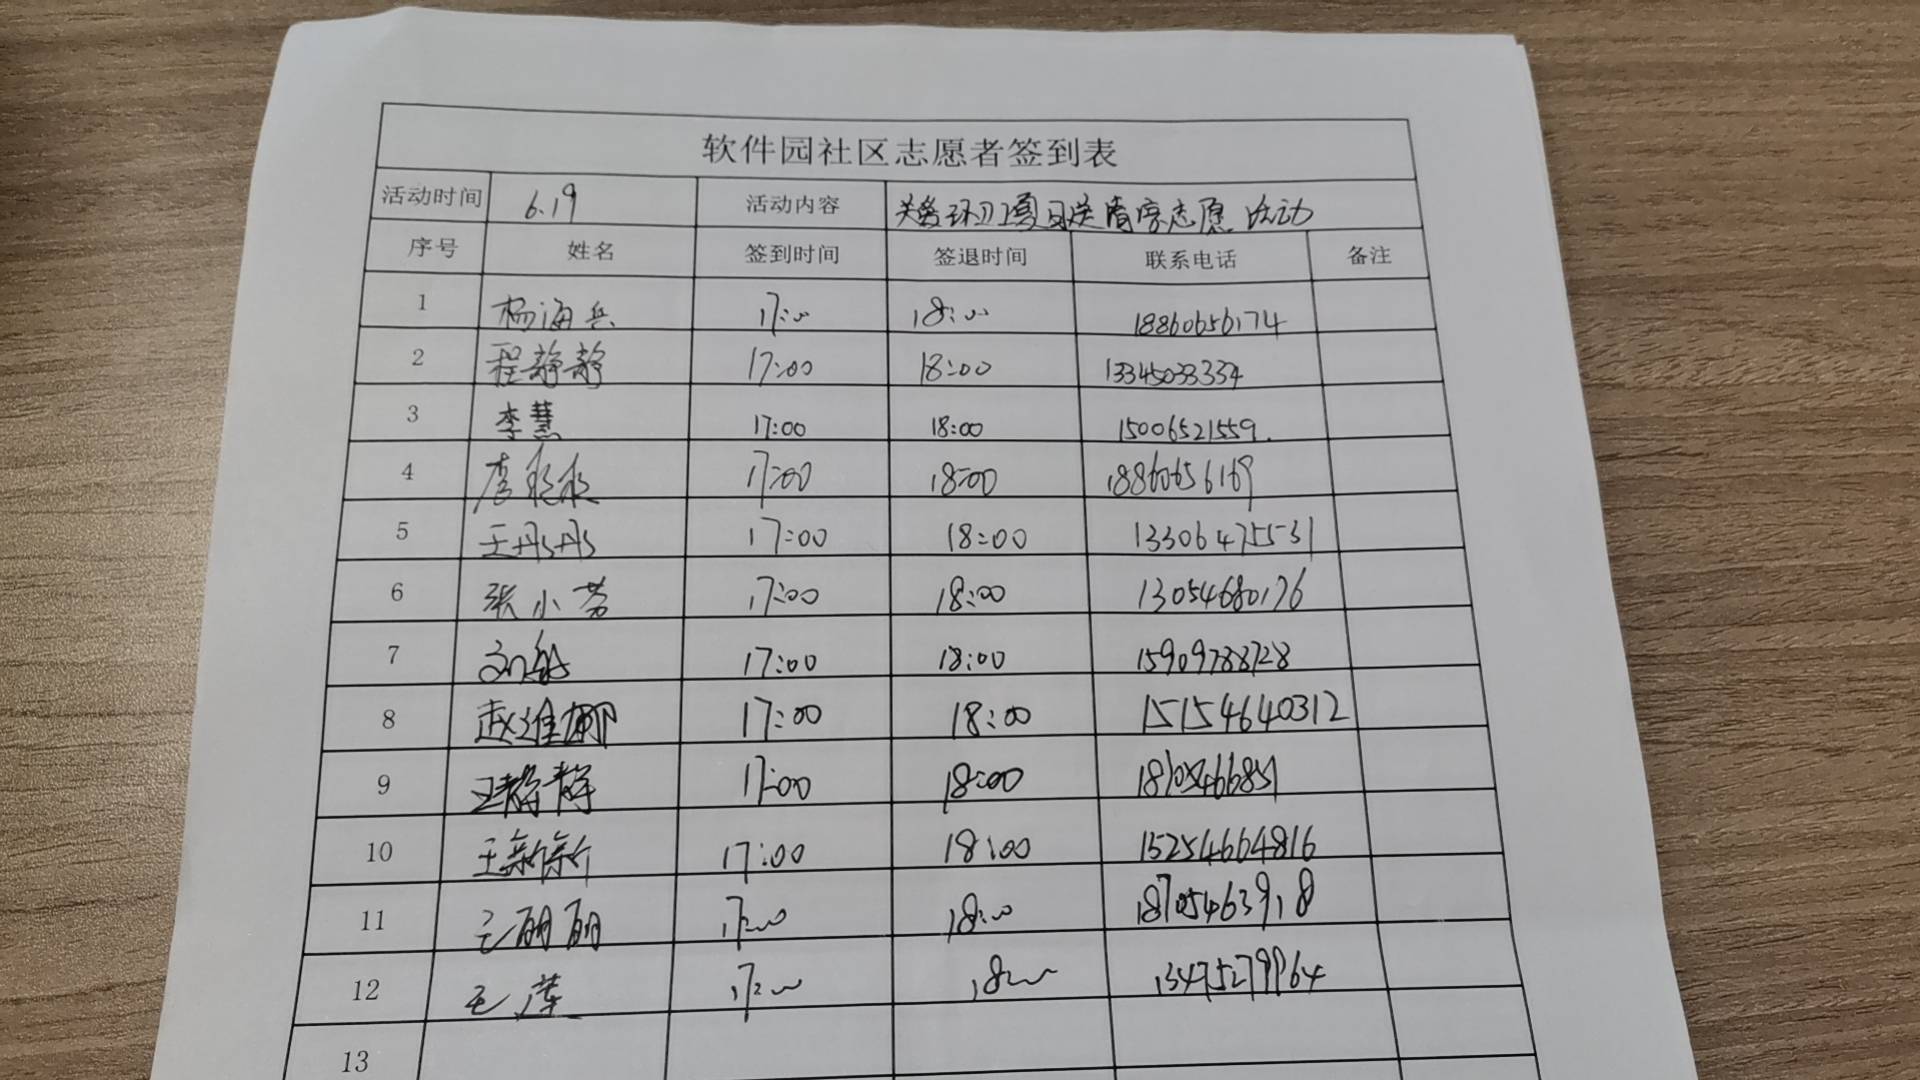 软件园社区志愿者签到表
活动时间 6.19 活动内容 关爱环卫工夏日送清凉志愿活动
序号 姓名 签到时间 签退时间 联系电话 备注
1 杨海兵 17:00 18:00 18860656174
2 程静静 17:00 18:00 13345033334
3 李慧 17:00 18:00 15006521559
4 17:00 18:00 18860656169
5 王彤彤 17:00 18:00 13306475531
6 张小芳 17:00 18:00 13054680176
7 17:00 18:00 15909788728
8 赵维娜 17:00 18:00 15154640312
9 王静静 17:00 18:00
10 王新新 17:00 18:00 15254664816
11 王丽丽 17:00 18:00 18705463918
12 王莲 17:00 18:00 13475279964
13